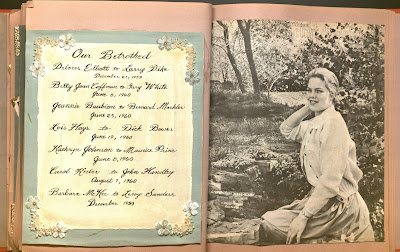 Our Betrothed
Delores Elliott to Larry Dike
December 27, 1959
Billy Jean Coffman to Gary White
June 5, 1960
Jeannie Baubion to Bernard Mohler
June 25, 1960
Lois Hays to Dick Bower
June 19, 1960
Kathryn Johnson to Maurice Prine
June 5, 1960
Carol Keeler to John Handley
August 7, 1960
Barbara McKee to Leroy Sanders
December 1959